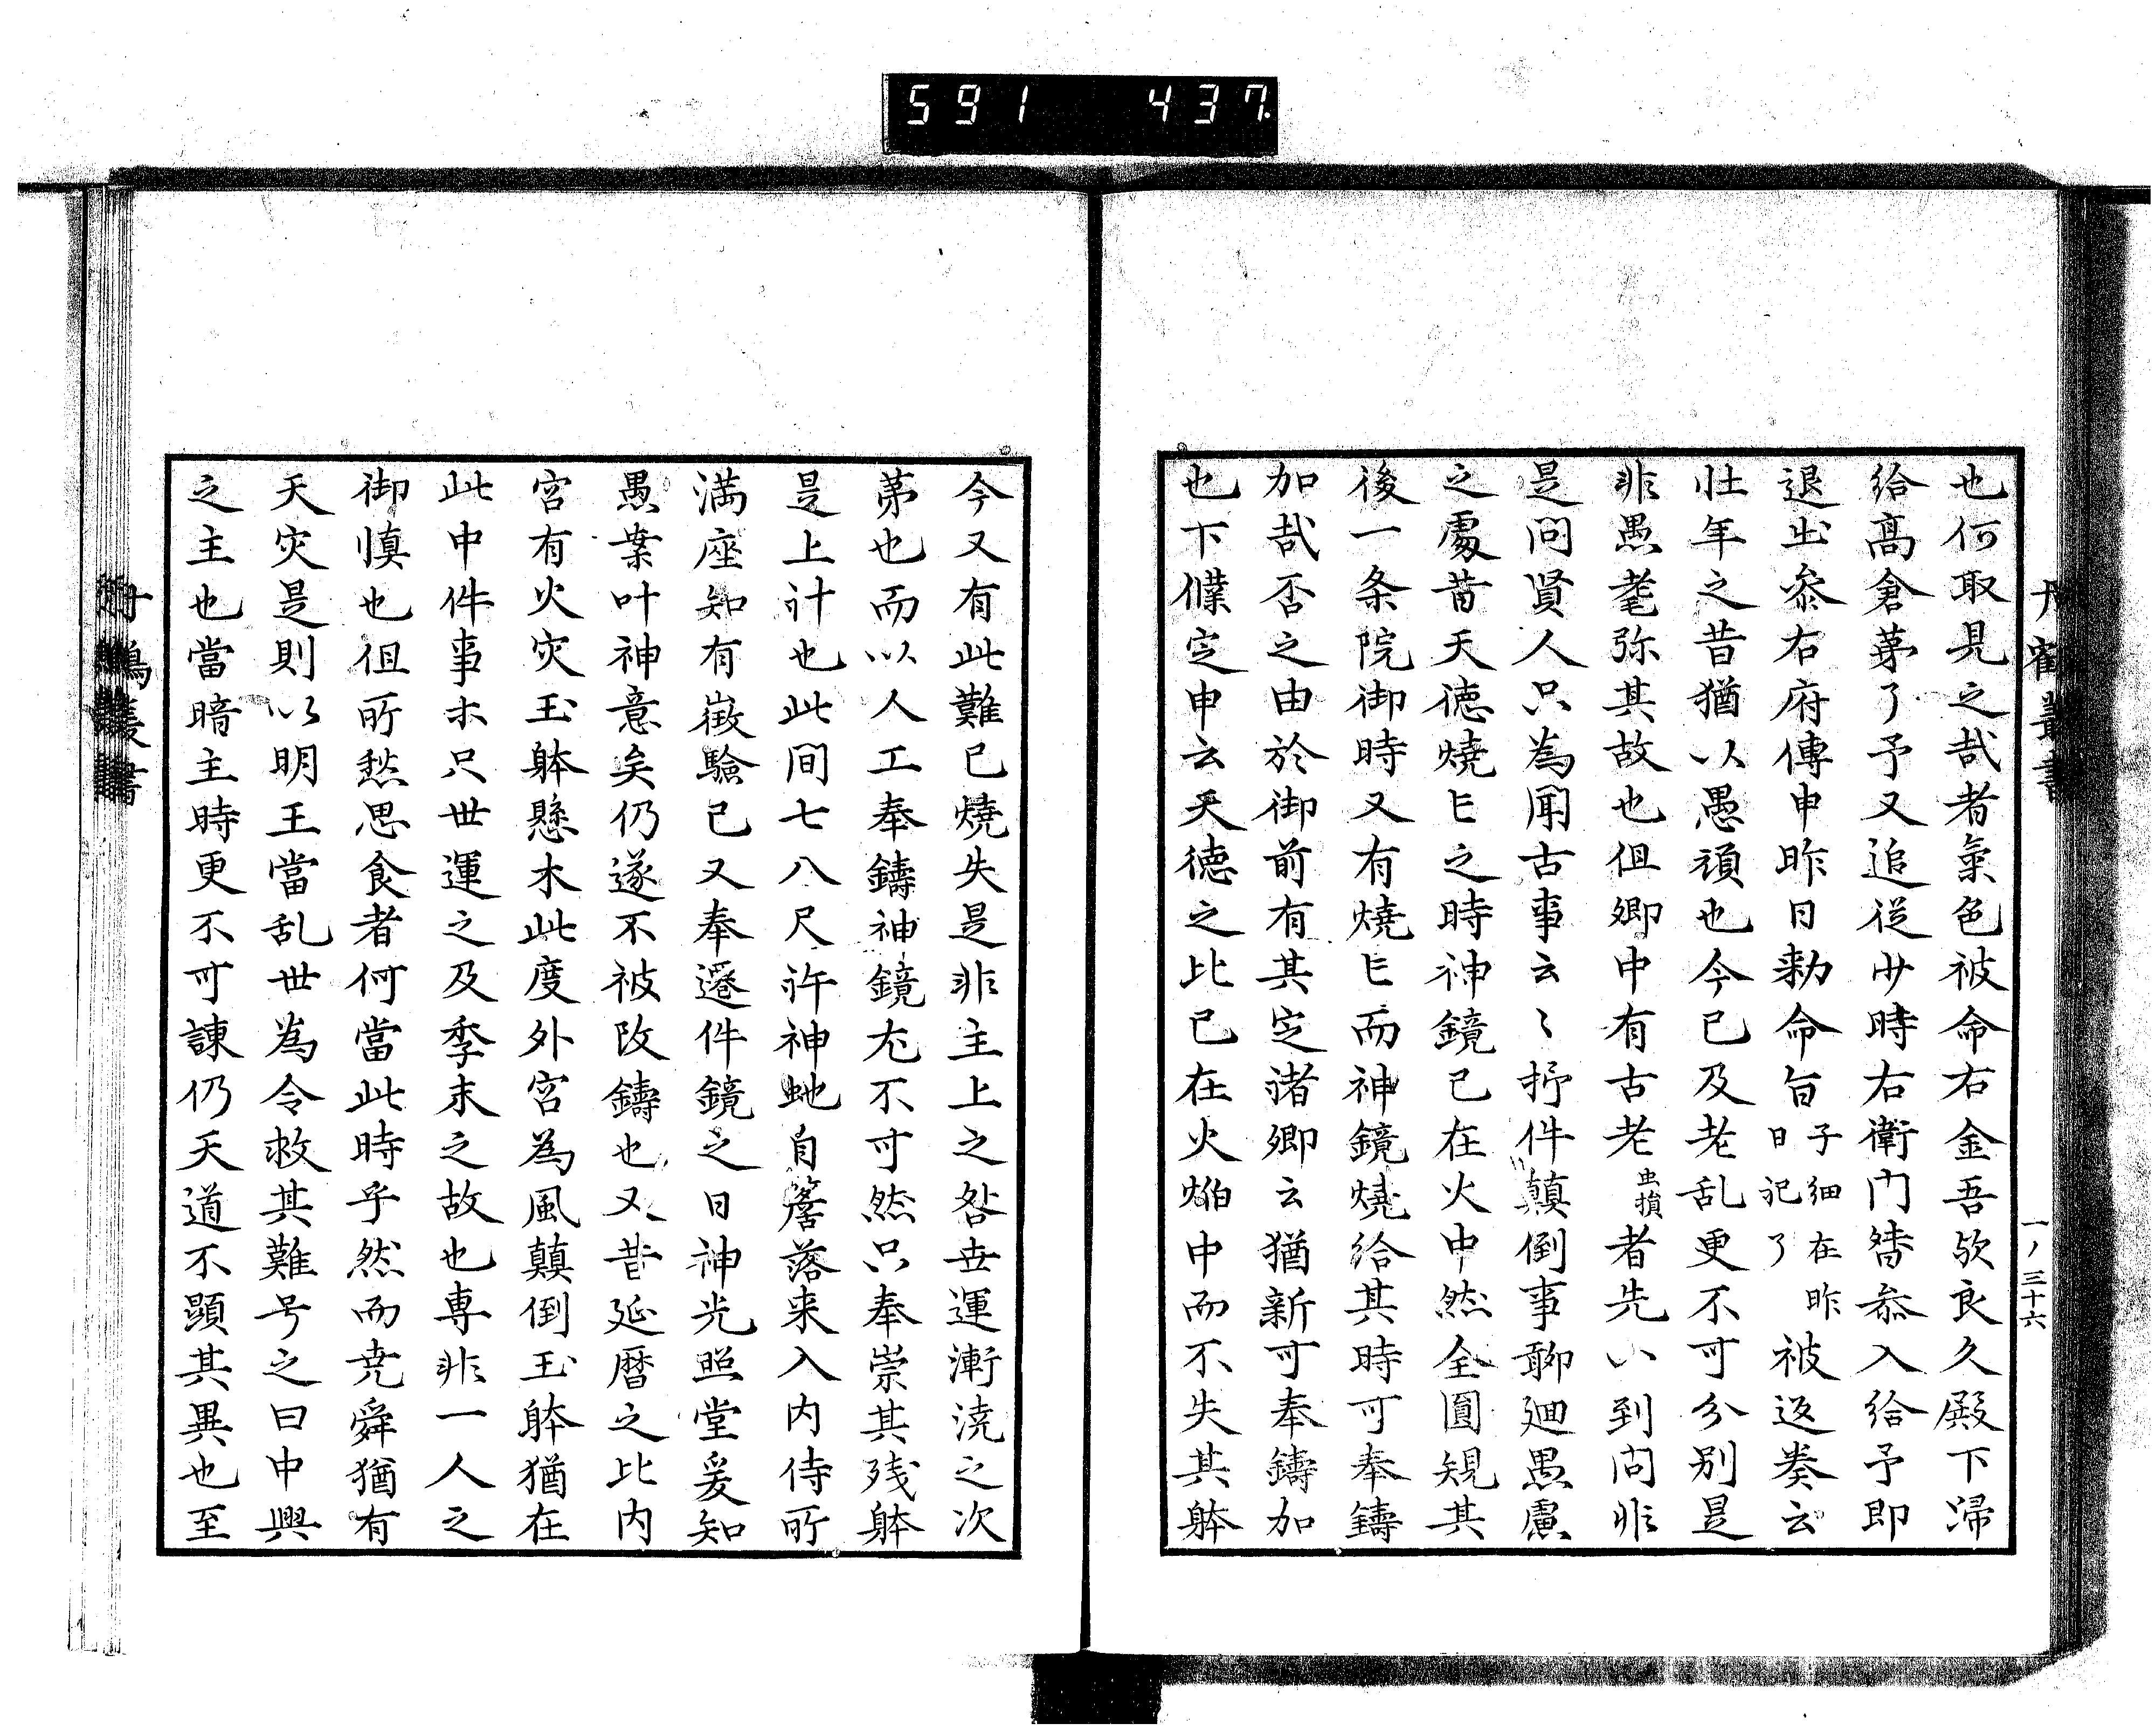 591 437
丹鶴叢書
一ノ三十六
也何取見之哉者氣色被命右金吾欤良久殿下帰
給高倉苐了予又追従少時右衛門督叅入給予即
退出叅右府傳申昨日勅命旨子細在昨日記了被返奏云
壮年之昔猶以愚頑也今已及老乱更不可分別是
非愚耄弥其故也但卿中有古老虫損者先以到問非
是問賢人只為聞古事云〻抒件顛倒事聊廻愚慮
之處昔天徳燒亡之時神鏡已在火中然全圓規其
後一条院御時又有燒亡而神鏡燒給其時可奉鑄
加哉否之由於御前有其定諸卿云猶新可奉鑄加
也下僕定申云天徳之比已在火焔中而不失其躰
今又有此難已燒失是非主上之咎世運漸澆之次
苐也而以人工奉鑄神鏡尤不可然只奉崇其残躰
是上計也此間七八尺許神虵自簷落来入内侍所
満座知有徴驗已又奉遷件鏡之日神光照堂爰知
愚葉叶神意矣仍遂不被改鑄也又昔延暦之比内
宮有火灾玉躰懸木此度外宮為風顛倒玉躰猶在
此中件事ホ只世運之及季末之故也専非一人之
御慎也但所愁思食者何當此時乎然而尭舜猶有
天灾是則以明王當乱世為令救其難号之曰中興
之主也當暗主時更不可諫仍天道不顕其異也至
丹鶴叢書